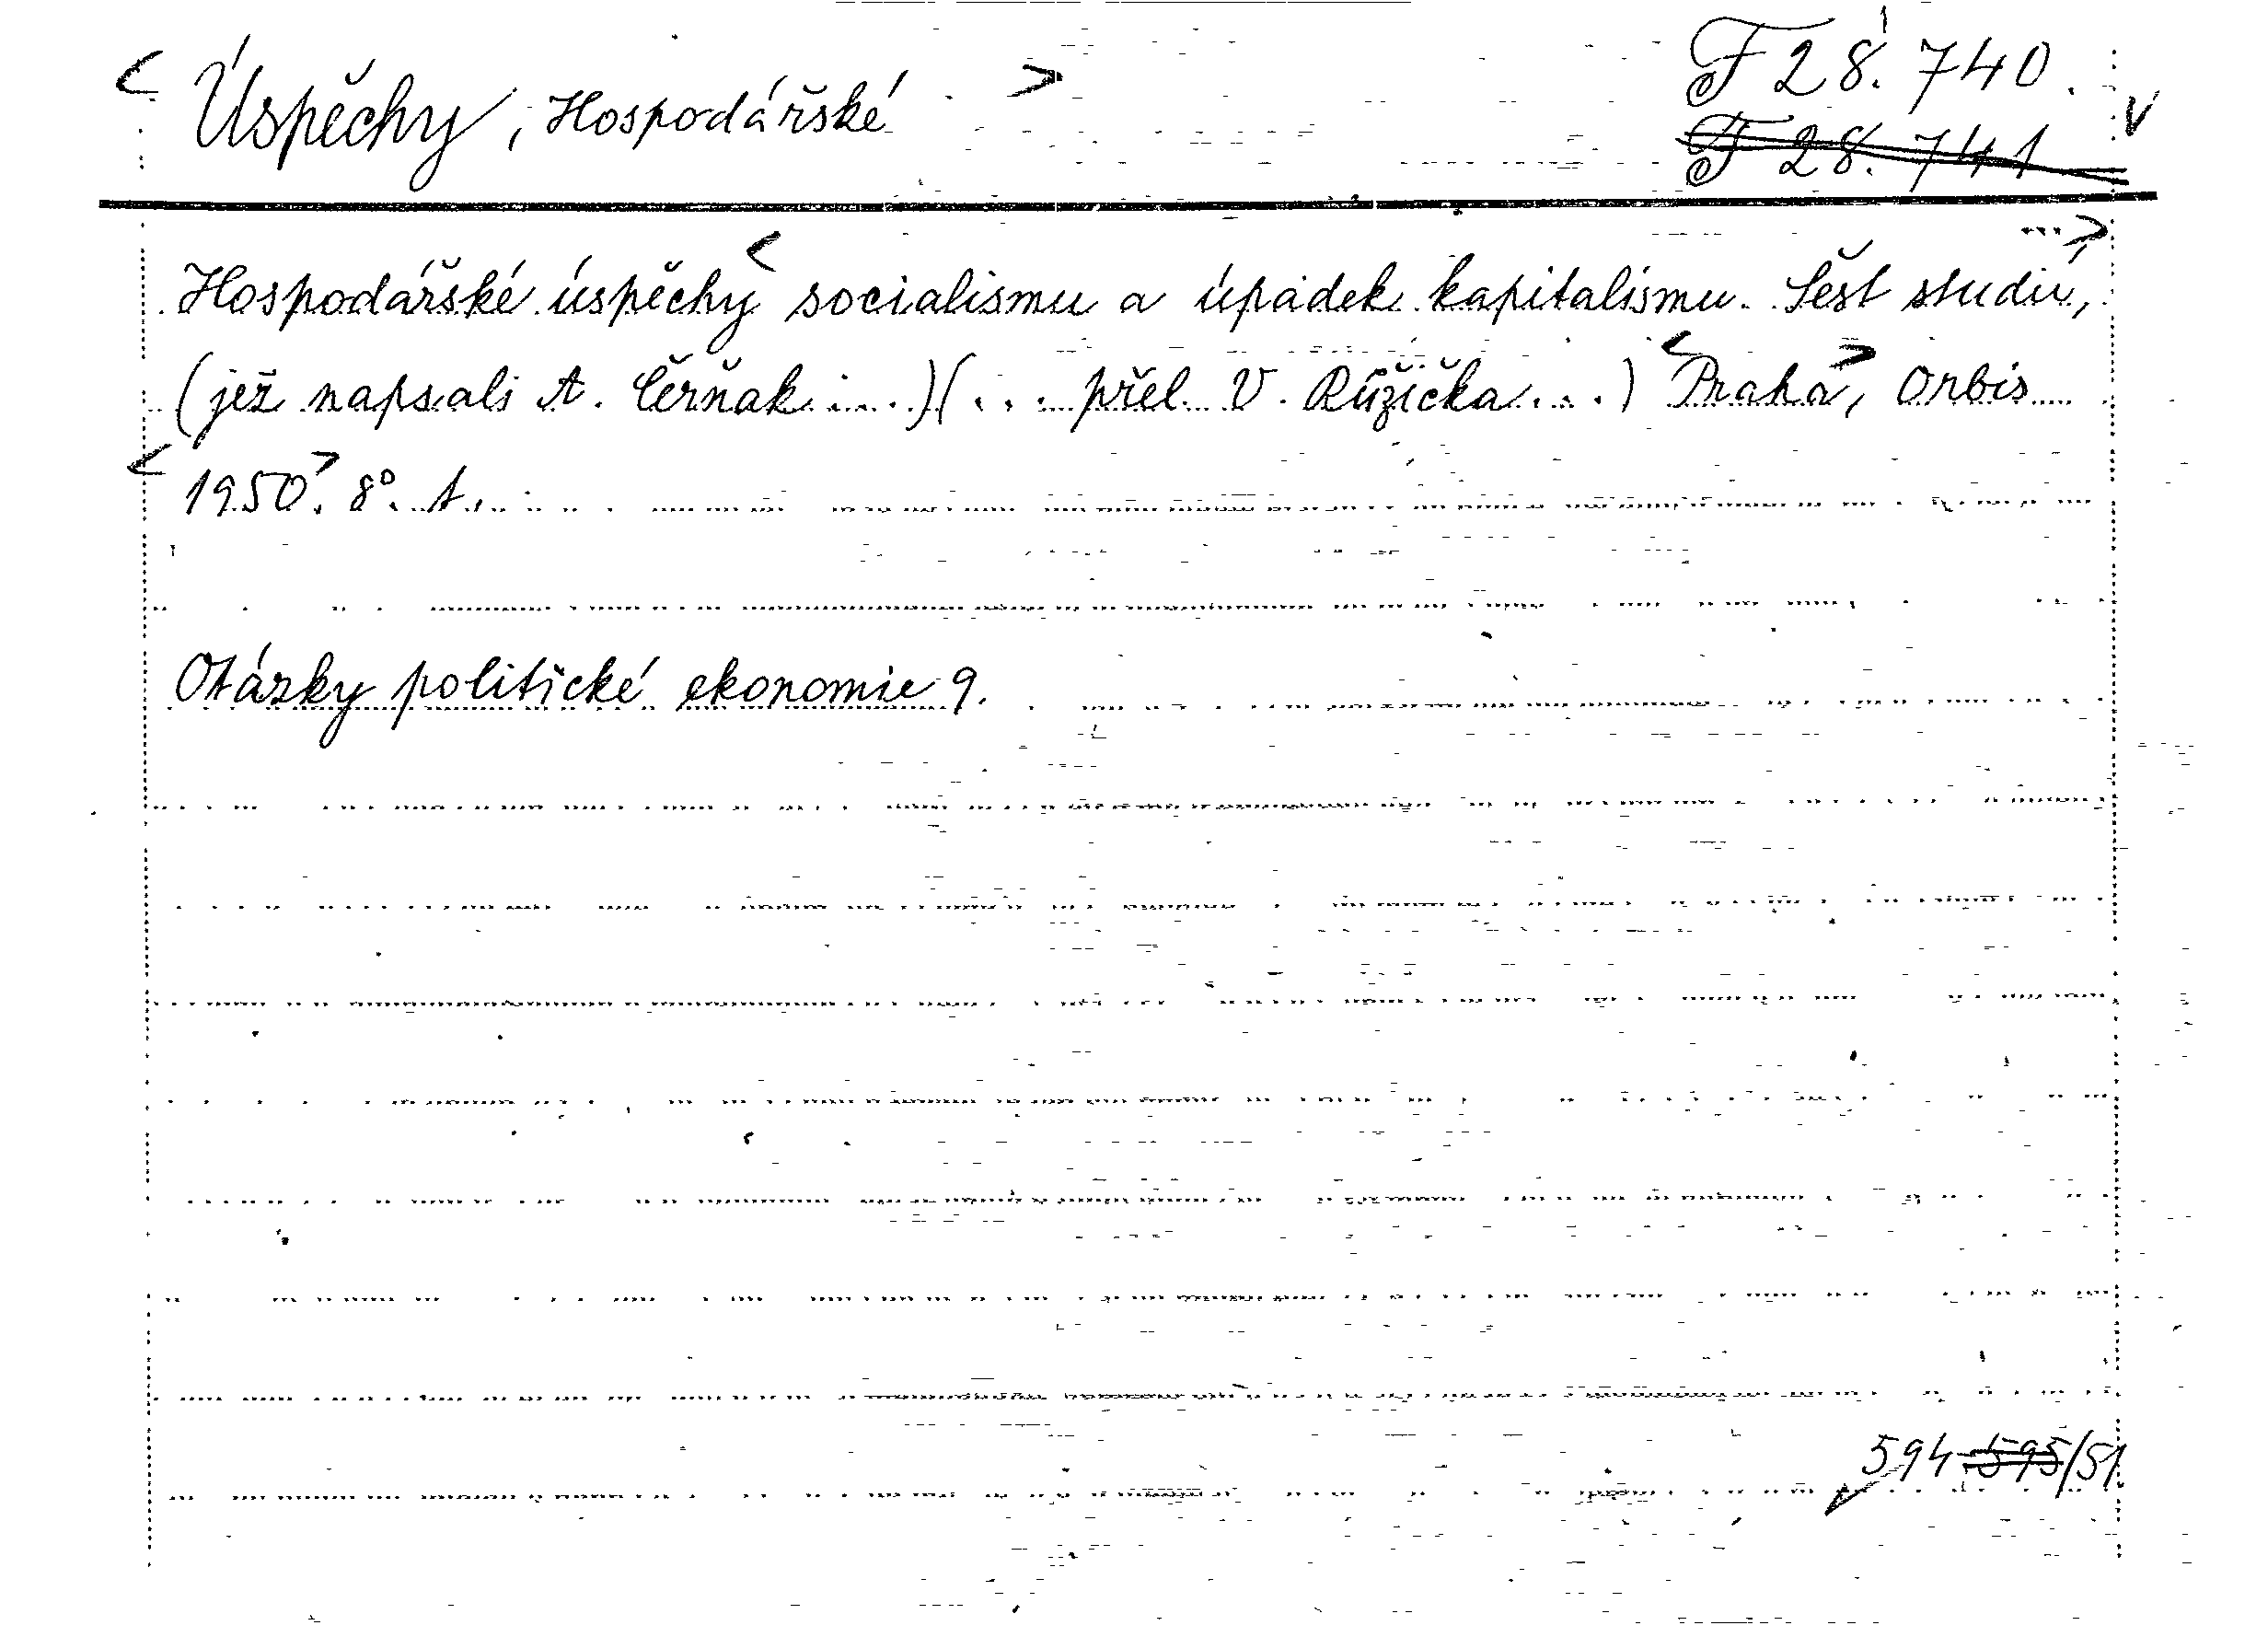 < Úspěchy, Hospodářské > F 28.740.
F 28.741
Hospodářské úspěchy < socialismu a úpadek kapitalismu. Šest studií, ...>
(jež napsali A. Čerňak....)(... přel. V. Růžička...) <Praha>, Orbis
<1950>. 8°.
Otázky politické ekonomie 9.
594-595/51